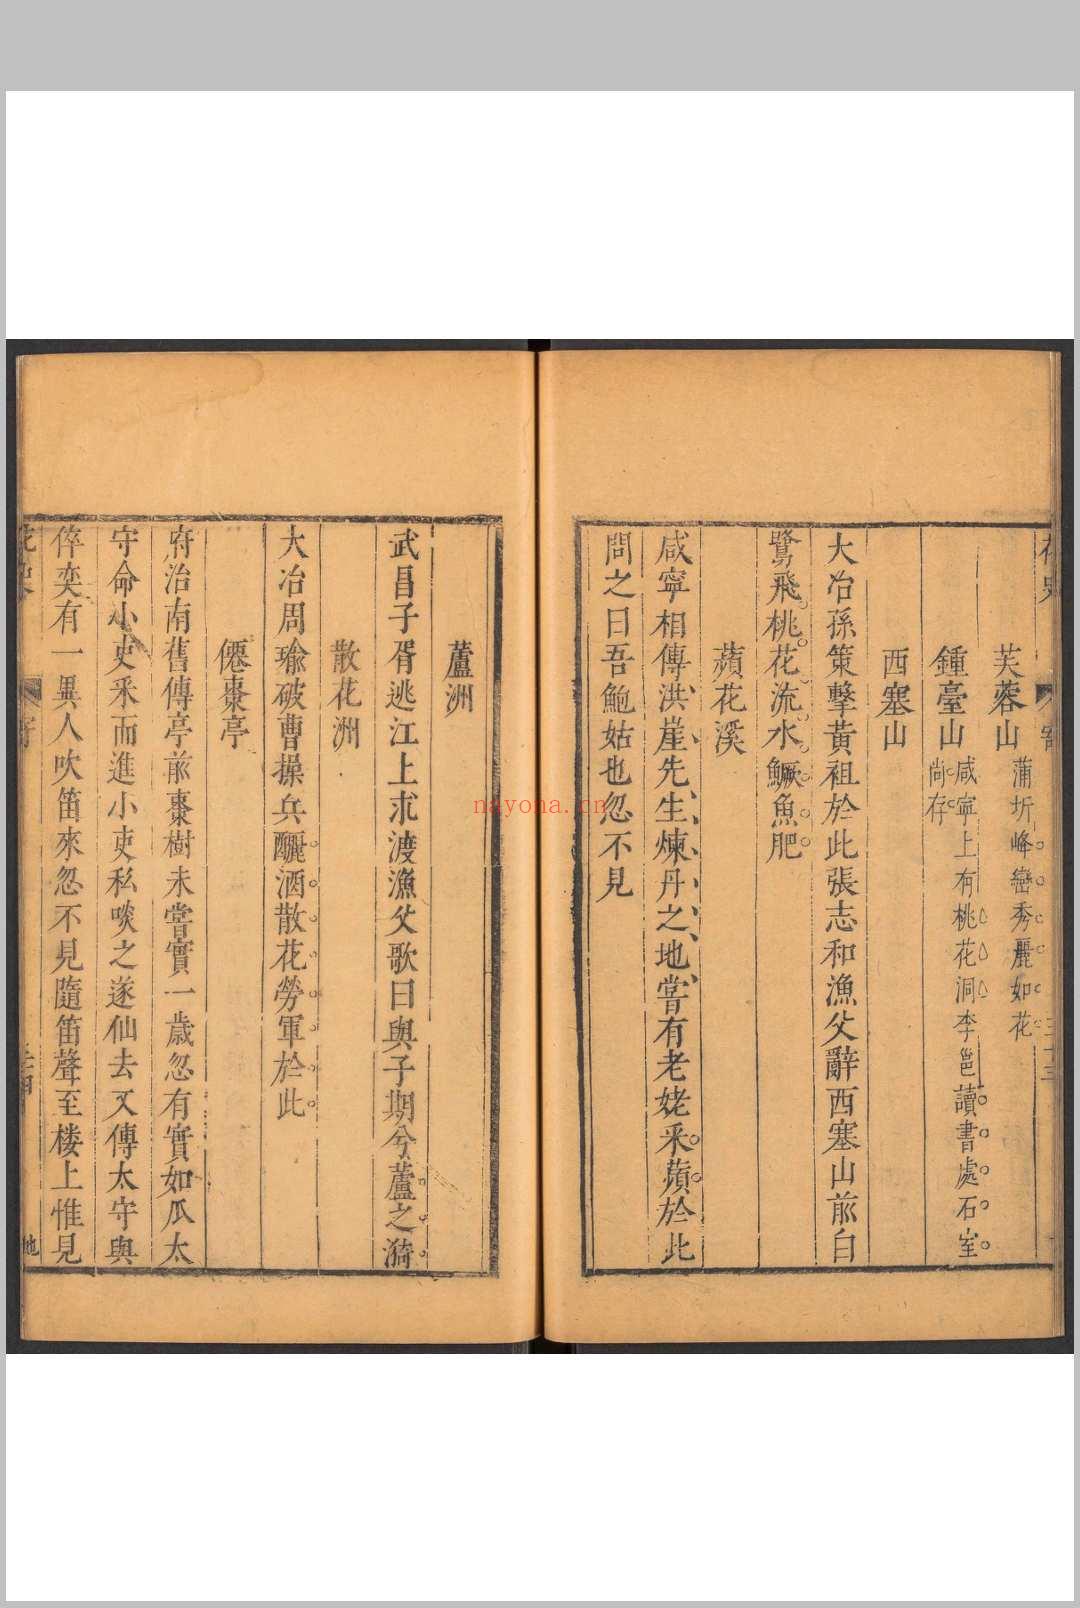 芙蓉山蒲圻峰巒秀麗如花
鍾臺山咸寧上有桃花洞李邕讀書處石室
尚存
西塞山
大冶孫策擊黃祖於此張志和漁父辭西塞山前白
鷺飛桃花流水鱖魚肥
蘋花溪
咸寧相傳洪崖先生煉丹之地嘗有老姥采蘋於此
問之曰吾鮑姑也忽不見
蘆洲
武昌子胥逃江上求渡漁父歌曰與子期兮蘆之漪
散花洲
大冶周瑜破曹操兵釃酒散花勞軍於此
僊棗亭
府治南舊傳亭前棗樹未嘗實一歲忽有實如瓜太
守命小吏采而進小吏私啖之遂仙去又傳太守與
倅奕有一異人吹笛來忽不見隨笛聲至楼上惟見
nayona.cn